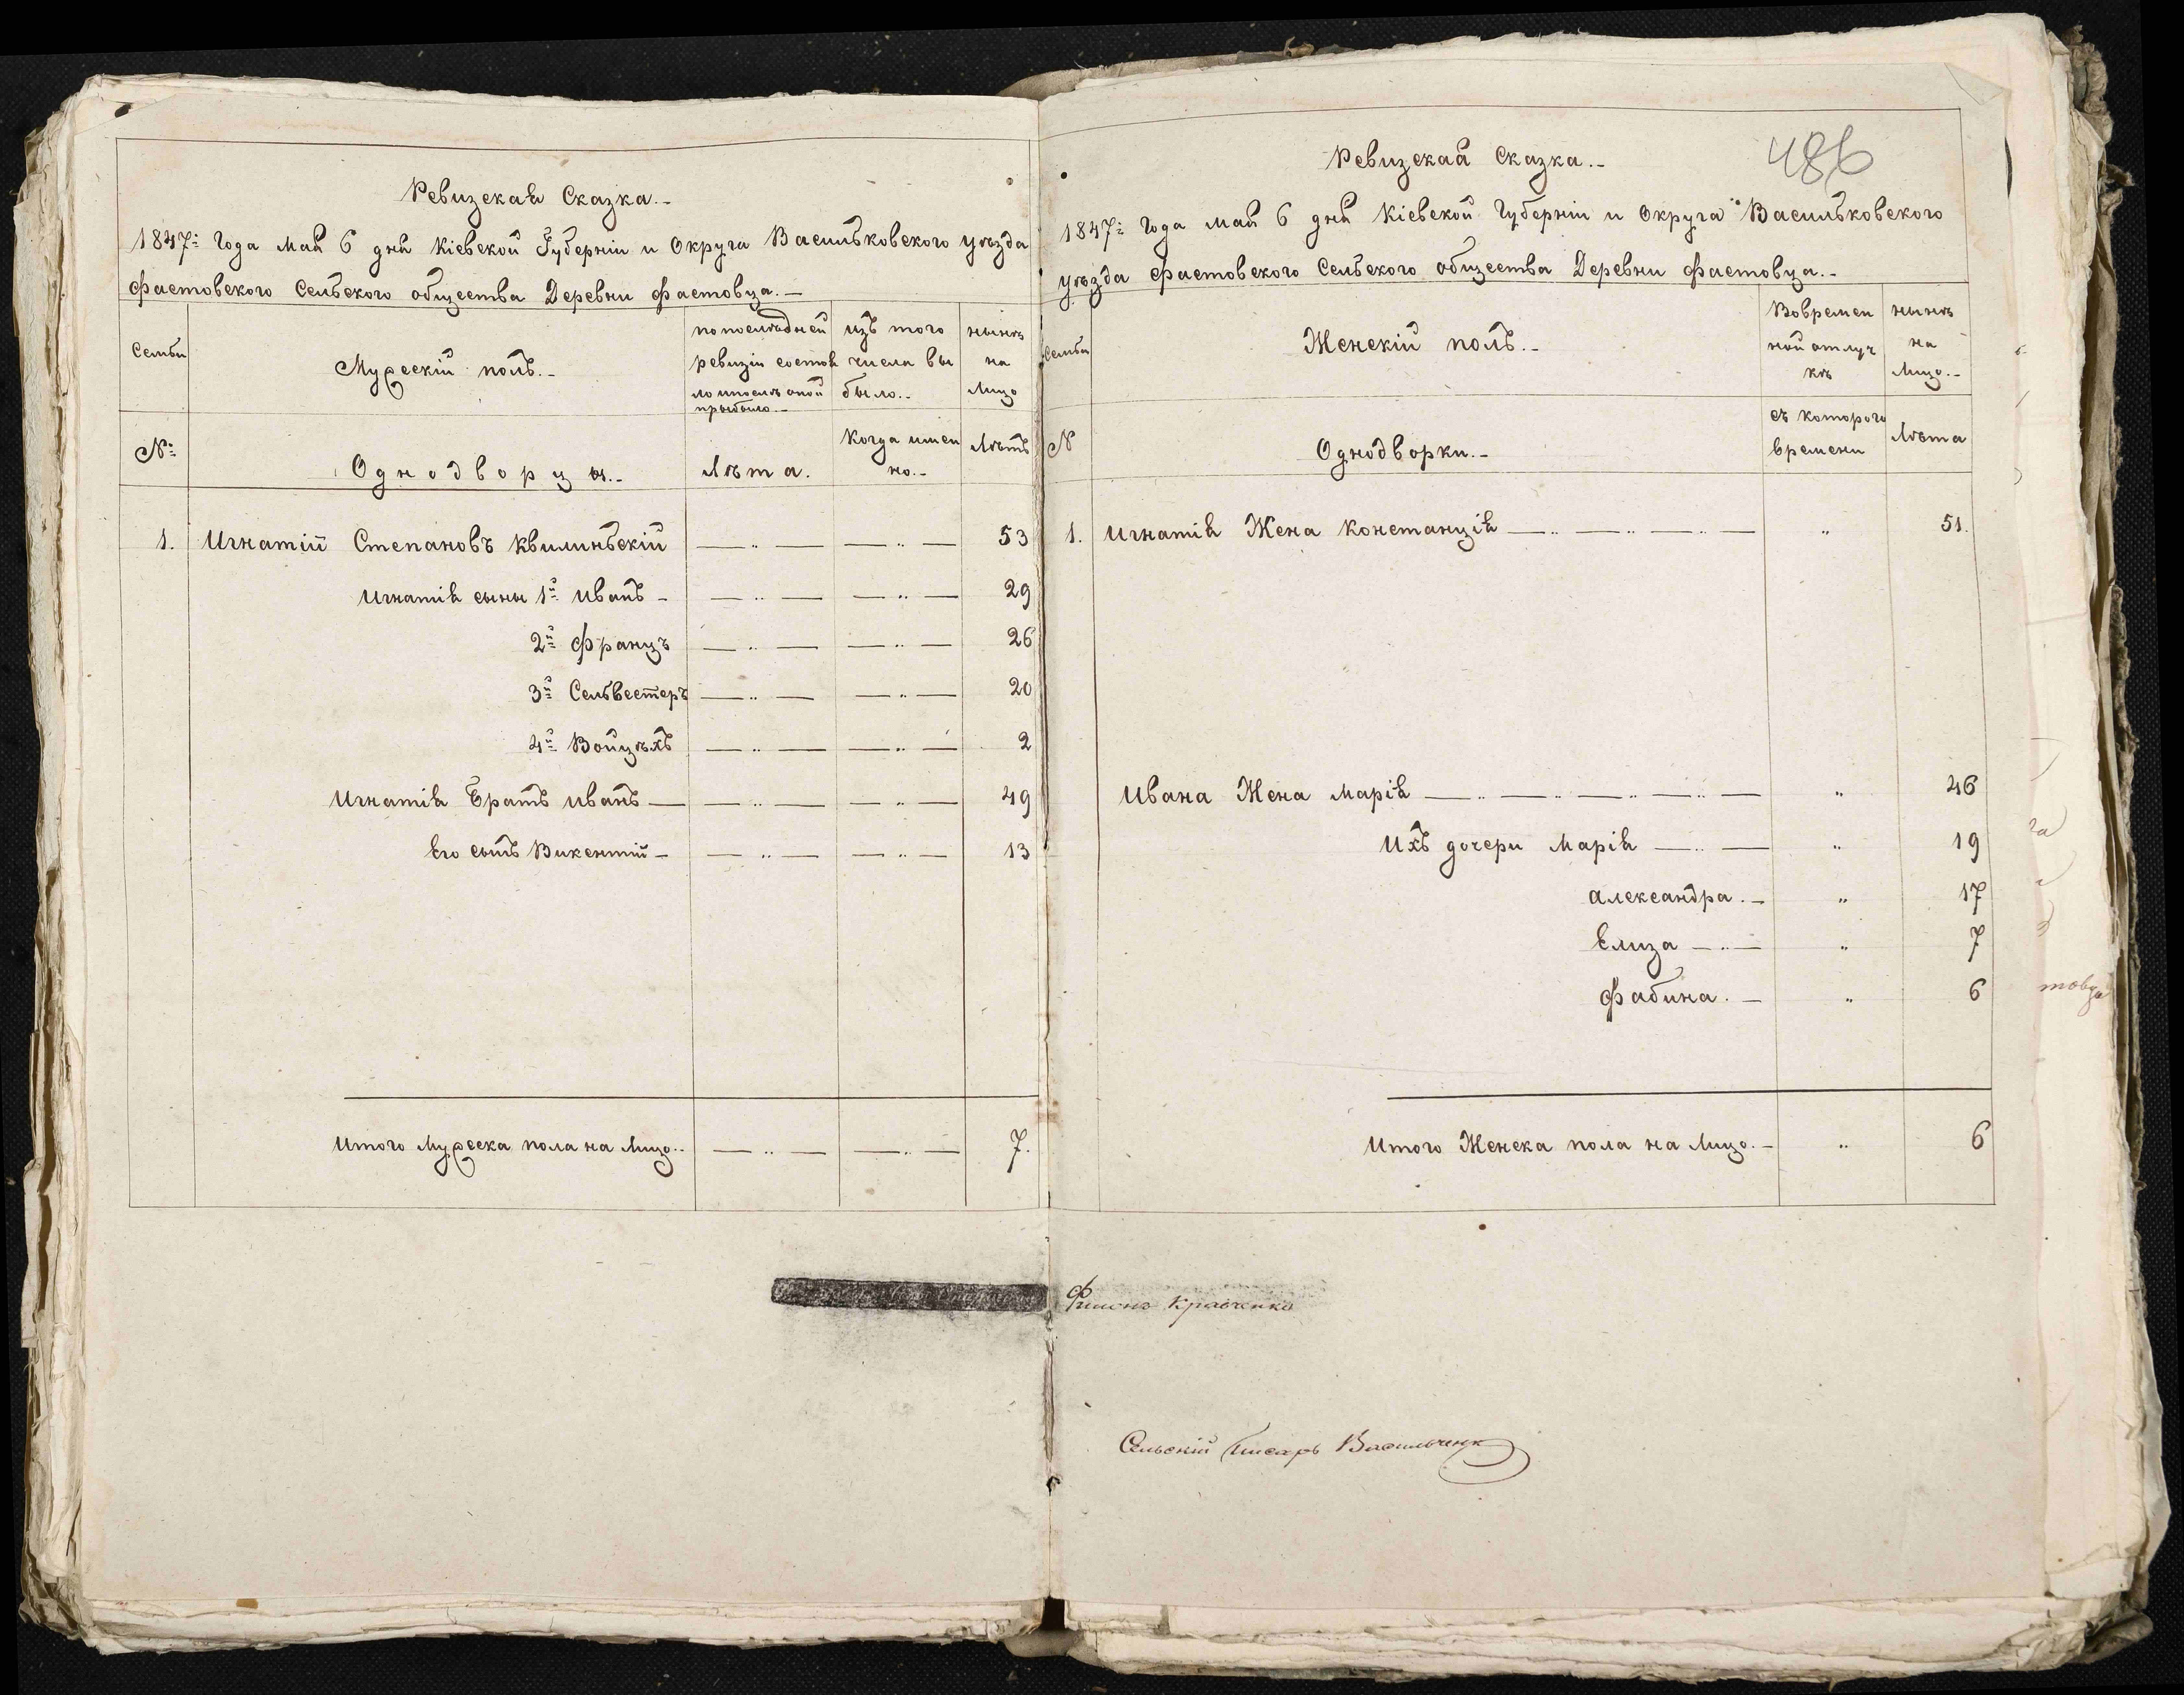 Ревизская Сказка.
1847: Года мая 6 дня Кіевской Губерніи и Округа Васильковского уѣзда
Фастовского Сельского общества Деревни Фастовца.
Семьи
Мужескій полъ.
попослѣдней
ревизіи состоя
ло и послѣ оной
прыбыло.
изъ того
числа вы
было.
нынѣ
на
лицо
№
Однодворцы.
Лѣта.
Когда имен
но.
Лѣтъ
1. Игнатій Степановъ Квилинскій — " — — " — 53
Игнатія сыны 1й Иванъ — " — — " — 29
2й Францъ — " — — " — 26
3й Сельвестеръ — " — — " — 20
4й Войцѣхъ — " — — " — 2
Игнатія Братъ Иванъ — " — — " — 49
Его сынъ Викентій — " — — " — 13
Итого мужеска пола на лицо.. — " — — " — 7.
486
Ревизская Сказка.
1847: Года мая 6 дня Кіевской Губерніи и Округа Васильковского
уѣзда Фастовского Сельского общества Деревни Фастовца.
Семьи
Женскій полъ.
Вовремен
ной отлуч
кѣ
нынѣ
на
лицо.
№
Однодворки.
съ которого
времени
Лѣта
1. Игнатія Жена Констанція " 51.
Ивана Жена Марія " 46
Ихъ дочери Марія " 19
Александра. " 17
Елиза " 7
Фабина. " 6
Итого Женска пола на лицо. " 6
Кравченко
Сельскій писарь Васильченк